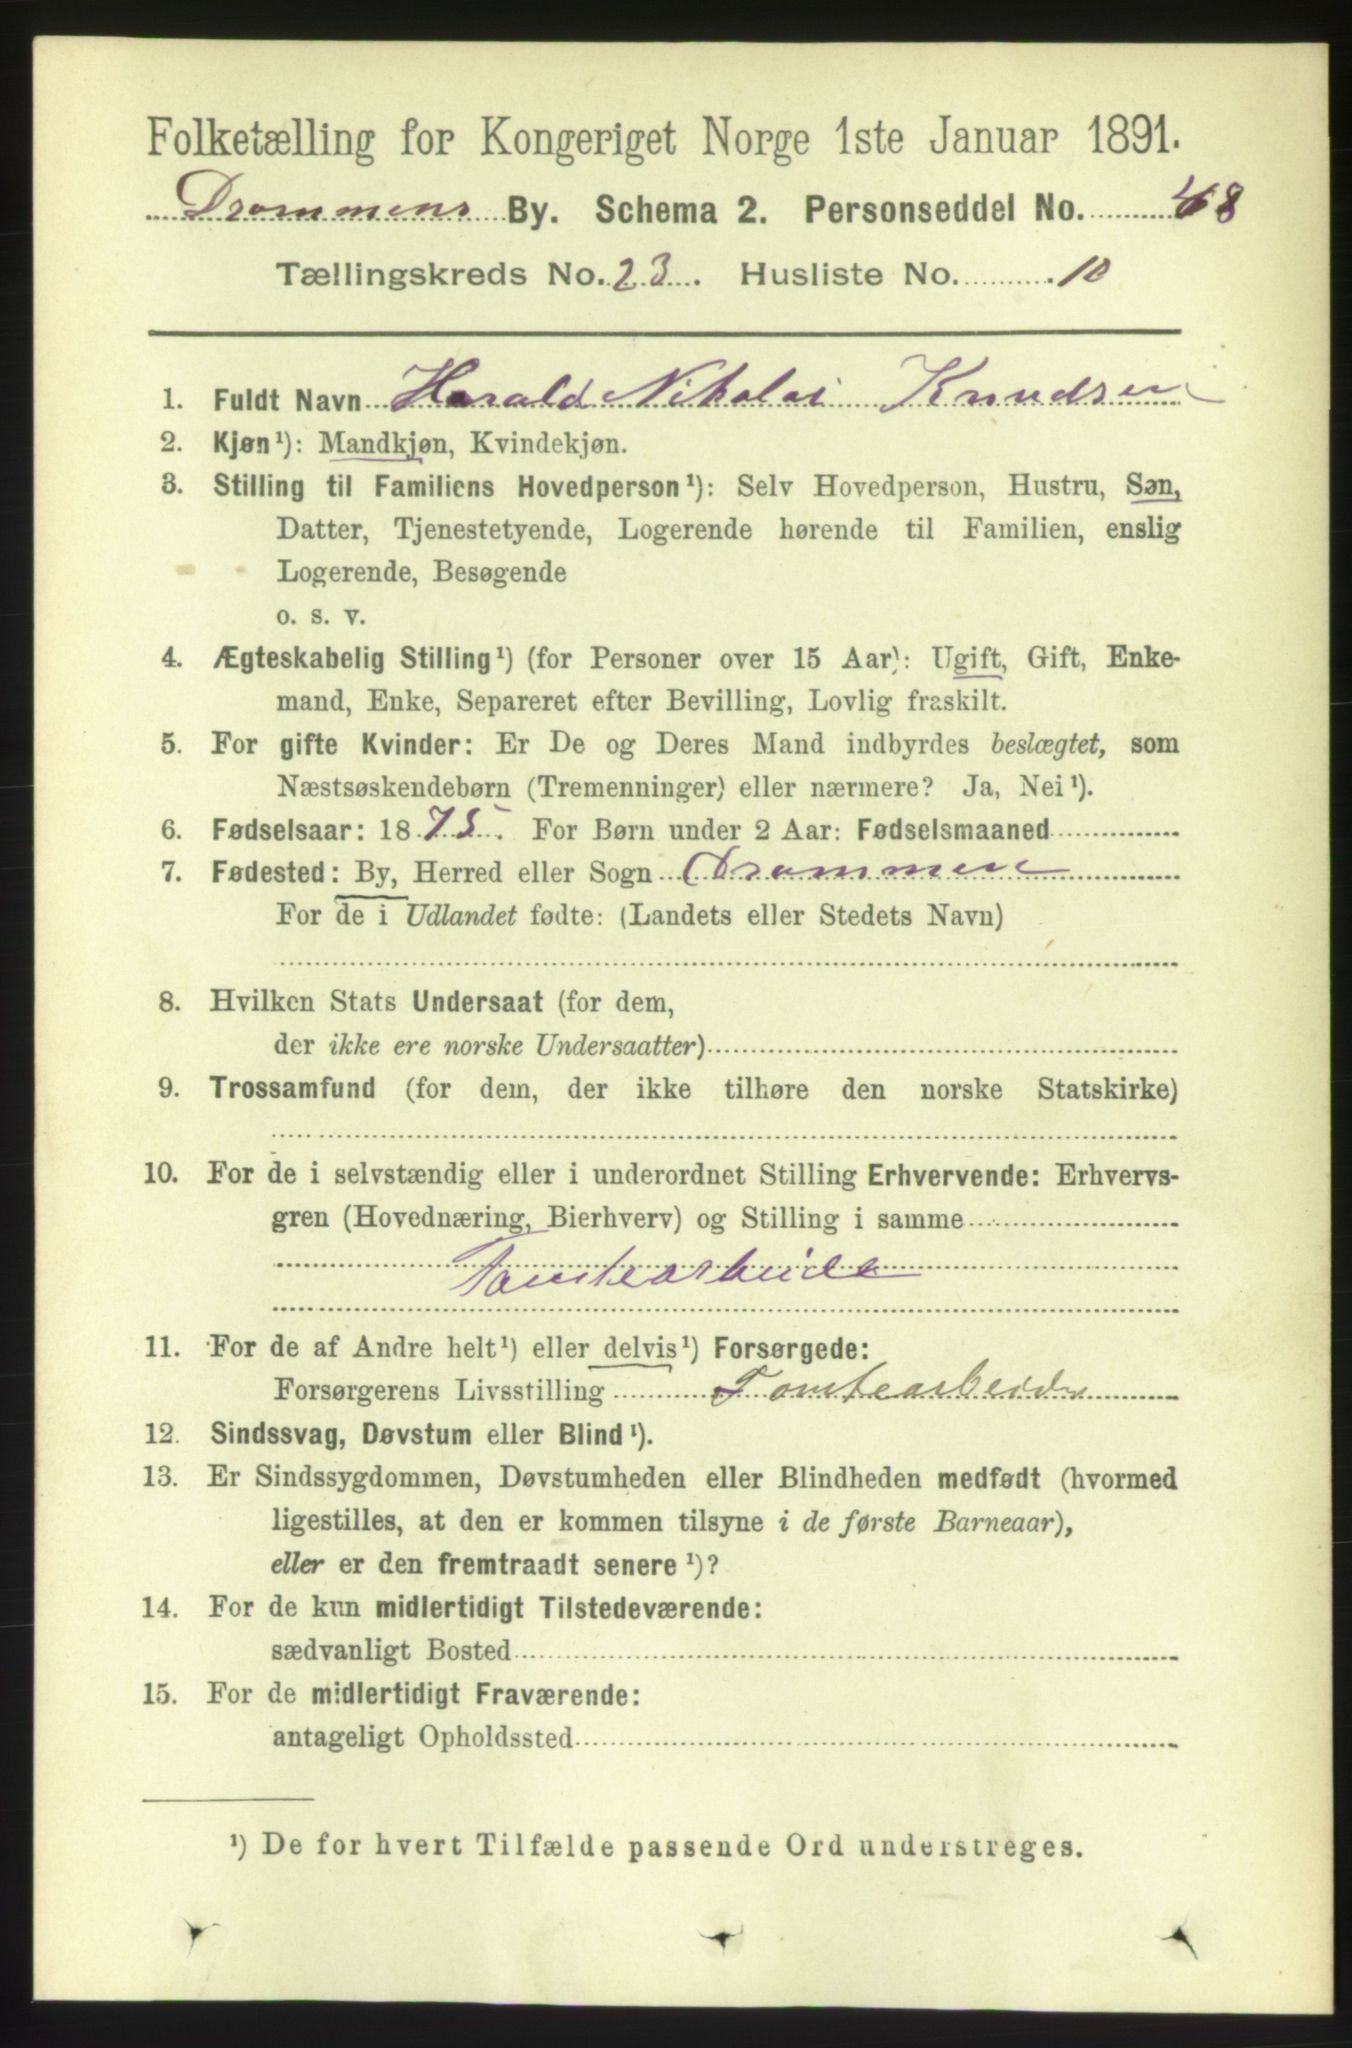 Folketælling for Kongeriget Norge 1ste Januar 1891.
Drammens By. Schema 2. Personseddel No. 48
Tællingskreds No. 23. Husliste No. 10
1. Fuldt Navn Harald Nikolai Knudsen
2. Kjøn¹): Mandkjøn, Kvindekjøn.
3. Stilling til Familiens Hovedperson¹): Selv Hovedperson, Hustru, Søn,
Datter, Tjenestetyende, Logerende hørende til Familien, enslig
Logerende, Besøgende
o. s. v.
4. Ægteskabelig Stilling¹) (for Personer over 15 Aar): Ugift, Gift, Enke-
mand, Enke, Separeret efter Bevilling, Lovlig fraskilt.
5. For gifte Kvinder: Er De og Deres Mand indbyrdes beslægtet, som
Næstsøskendebørn (Tremenninger) eller nærmere? Ja, Nei¹).
6. Fødselsaar: 1875. For Børn under 2 Aar: Fødselsmaaned
7. Fødested: By, Herred eller Sogn Drammen
For de i Udlandet fødte: (Landets eller Stedets Navn)
8. Hvilken Stats Undersaat (for dem,
der ikke ere norske Undersaatter)
9. Trossamfund (for dem, der ikke tilhøre den norske Statskirke)
10. For de i selvstændig eller i underordnet Stilling Erhvervende: Erhvervs-
gren (Hovednæring, Bierhverv) og Stilling i samme
Tomtearbeider
11. For de af Andre helt¹) eller delvis¹) Forsørgede:
Forsørgerens Livsstilling Tomtearbeider
12. Sindssvag, Døvstum eller Blind¹).
13. Er Sindssygdommen, Døvstumheden eller Blindheden medfødt (hvormed
ligestilles, at den er kommen tilsyne i de første Barneaar),
eller er den fremtraadt senere¹)?
14. For de kun midlertidigt Tilstedeværende:
sædvanligt Bosted
15. For de midlertidigt Fraværende:
antageligt Opholdssted
¹) De for hvert Tilfælde passende Ord understreges.